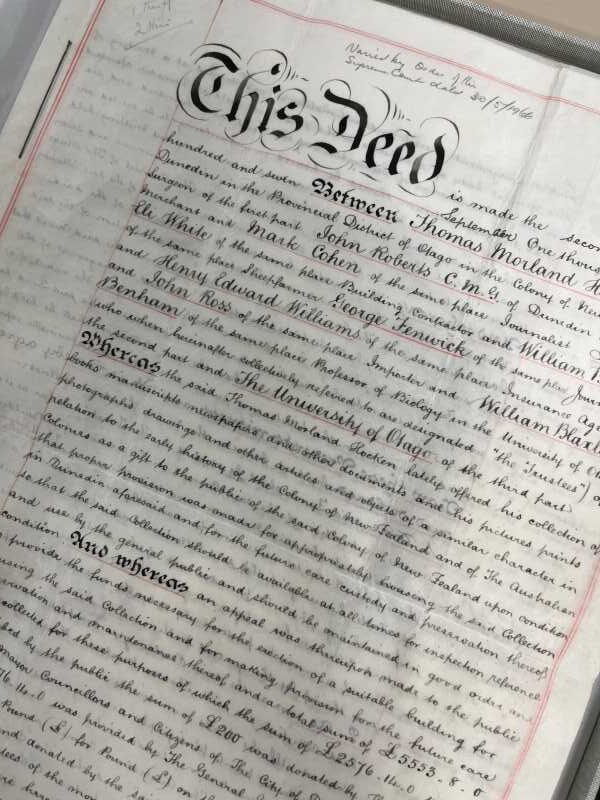 1 Trust
Varied by Order of the
Supreme Court dated 20/5/1966
This Deed is made the secon
hundred and seven September One thous
Between Thomas Morland H
Dunedin in the Provincial District of Otago in the Colony of New
Surgeon of the first part John Roberts C.M.G of Dunedin
Merchant and Mark Cohen of the same place Journalist
White of the same place Building Contractor and William
of the same place Sheepfarmer George Fenwick of the same place Jour
and Henry Edward Williams of the same place Insurance Age
and John Ross of the same place Importer and William Bla
Benham of the same place Professor of Biology in the University of Ot
who when hereinafter collectively referred to are designated "the Trustees") of
the second part and The University of Otago of the third part
Whereas the said Thomas Morland Hocken lately offered his collection of
books manuscripts newspapers and other documents and his pictures prints
photographs drawings and other articles and objects of a similar character in
relation to the early history of the Colony of New Zealand and of The Australian
Colonies as a gift to the public of the said Colony of New Zealand upon condition
that proper provision was made for appropriately housing the said Collection
in Dunedin aforesaid and for the future care custody and preservation thereof
that the said Collection should be available at all times for inspection reference
and use by the general public and should be maintained in good order and
condition And whereas an appeal was thereupon made to the public
provide the funds necessary for the erection of a suitable building for
using the said Collection and for making provision for the future care
and maintenance thereof and a total sum of £5553-8-0
collected for these purposes of which the sum of £2576.14.0
by the public the sum of £200 was donated by The
Mayor Councillors and Citizens of The City of
76.14.0 was provided by The General
Pound (£) for Pound (£) on th
and donated by the sai
of the mon